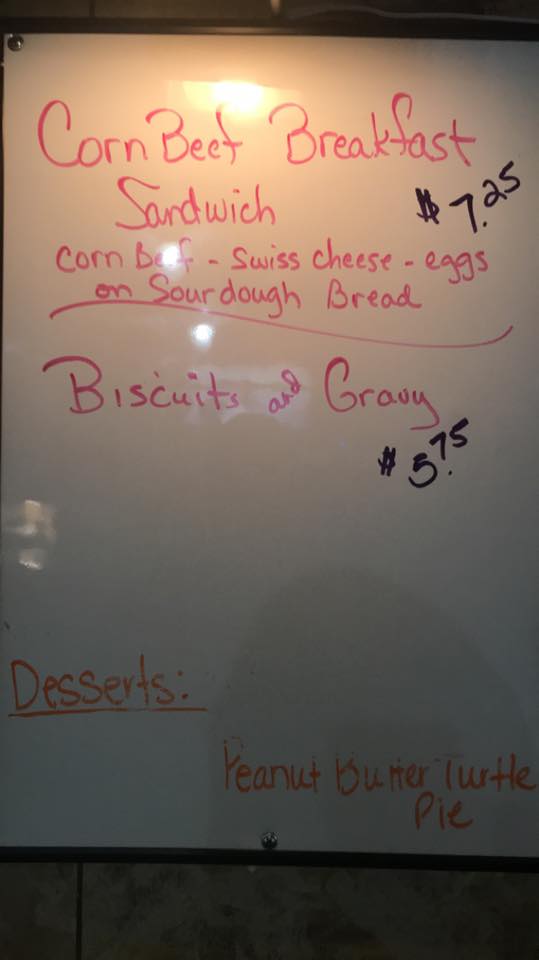 Corn Beef Breakfast
Sandwich
$7.25
Corn Beef - Swiss cheese - eggs
on Sourdough Bread
Biscuits and Gravy
$5.75
Desserts:
Peanut Butter Turtle
Pie